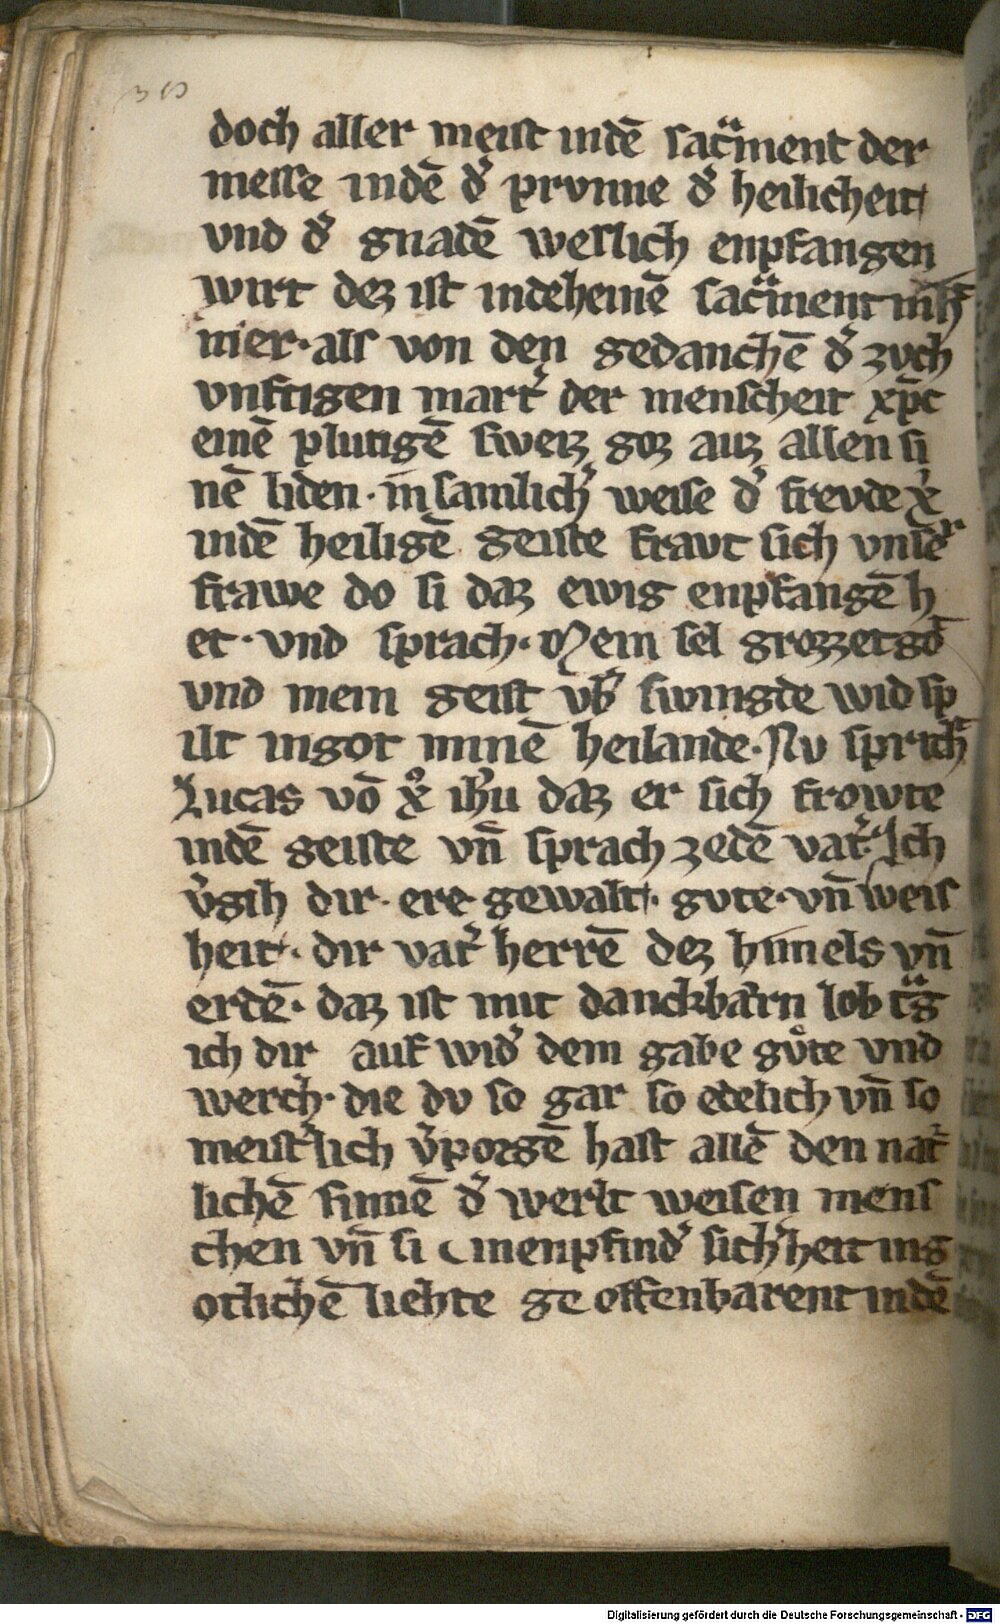 doch aller meist indē sac̃ment der
messe indē d̾ prvnne d̾ heilicheit
vnd d̾ gnadē weslich enpfangen
wirt dez ist indeheinē sac̃ment
mer · als von den gedanchē d̾ zvch
vnftigen mart̾ der menscheit xp̄c
einē plutigē sweiz goz auz allen si
nē liden · in samlich̾ weise d̾ frevde x̾
indē heiligē geiste fravt sich vnsē
frawe do si daz ewig enpfangē h
et · vnd sprach · Mein sel grozzet gō
vnd mein geist vb̾ swingde wid sp
ilt ingot minē heilande · Nv sprich̾
Lucas vō x̊ ih̄u daz er sich frowte
indē geiste vn̄ sprach zedē vat̾ Ich
v̾gih dir · ere gewalt · gvte · vn̄ weis
heit · dir vat̾ herrē dez himels vn̄
erdē · daz ist mit danckbarn lob
ich dir auf wid̾ dem gabe gůte vnd
werch · die dv so gar so edelich vn̄ so
meist̾lich v̾porgē hast allē den nat̾
lichē sinnē d̾ werlt weisen mens
chen vn̄ si inenpfind̾ sich̾heit ing
otlichē liehte ge offenbarent indē
Digitalisierung gefördert durch die Deutsche Forschungsgemeinschaft - DFG